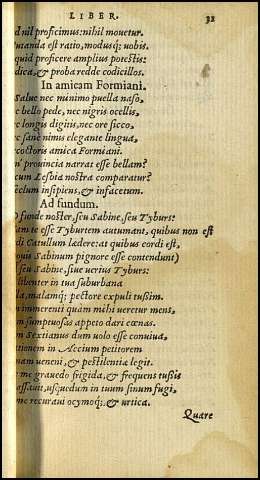 LIBER. 32
nil proficimus: nihil mouetur.
est ratio, modusq; uobis.
quid proficere amplius potestis:
& proba redde codicillos.
In amicam Formiani.
Salue nec minimo puella naso,
bello pede, nec nigris ocellis,
longis digitis, nec ore sicco,
sane nimis elegante lingua,
coctoris amica Formiani.
prouincia narrat esse bellam?
cum Lesbia nostra comparatur?
seclum insipiens, & infacetum.
Ad fundum.
funde noster, seu Sabine, seu Tyburs:
te esse Tyburtem autumant, quibus non est
di Catullum lædere: at quibus cordi est,
uis Sabinum pignore esse contendunt)
seu Sabine, siue uertus Tyburs:
libenter in tua suburbana
la, malamq; pectore expuli tussim.
immerenti quàm mihi ueretur mens,
sumptuosas appeto dari cœnas.
Sextianus dum uolo esse conuiua,
tionem in Accium petitorem
ueneni, & pestilentia legit.
me grauedo frigida, & frequens tussis
assauit, usquedum in tuum sinum fugi,
me recuraui ocymoq;, & urtica.
Quare